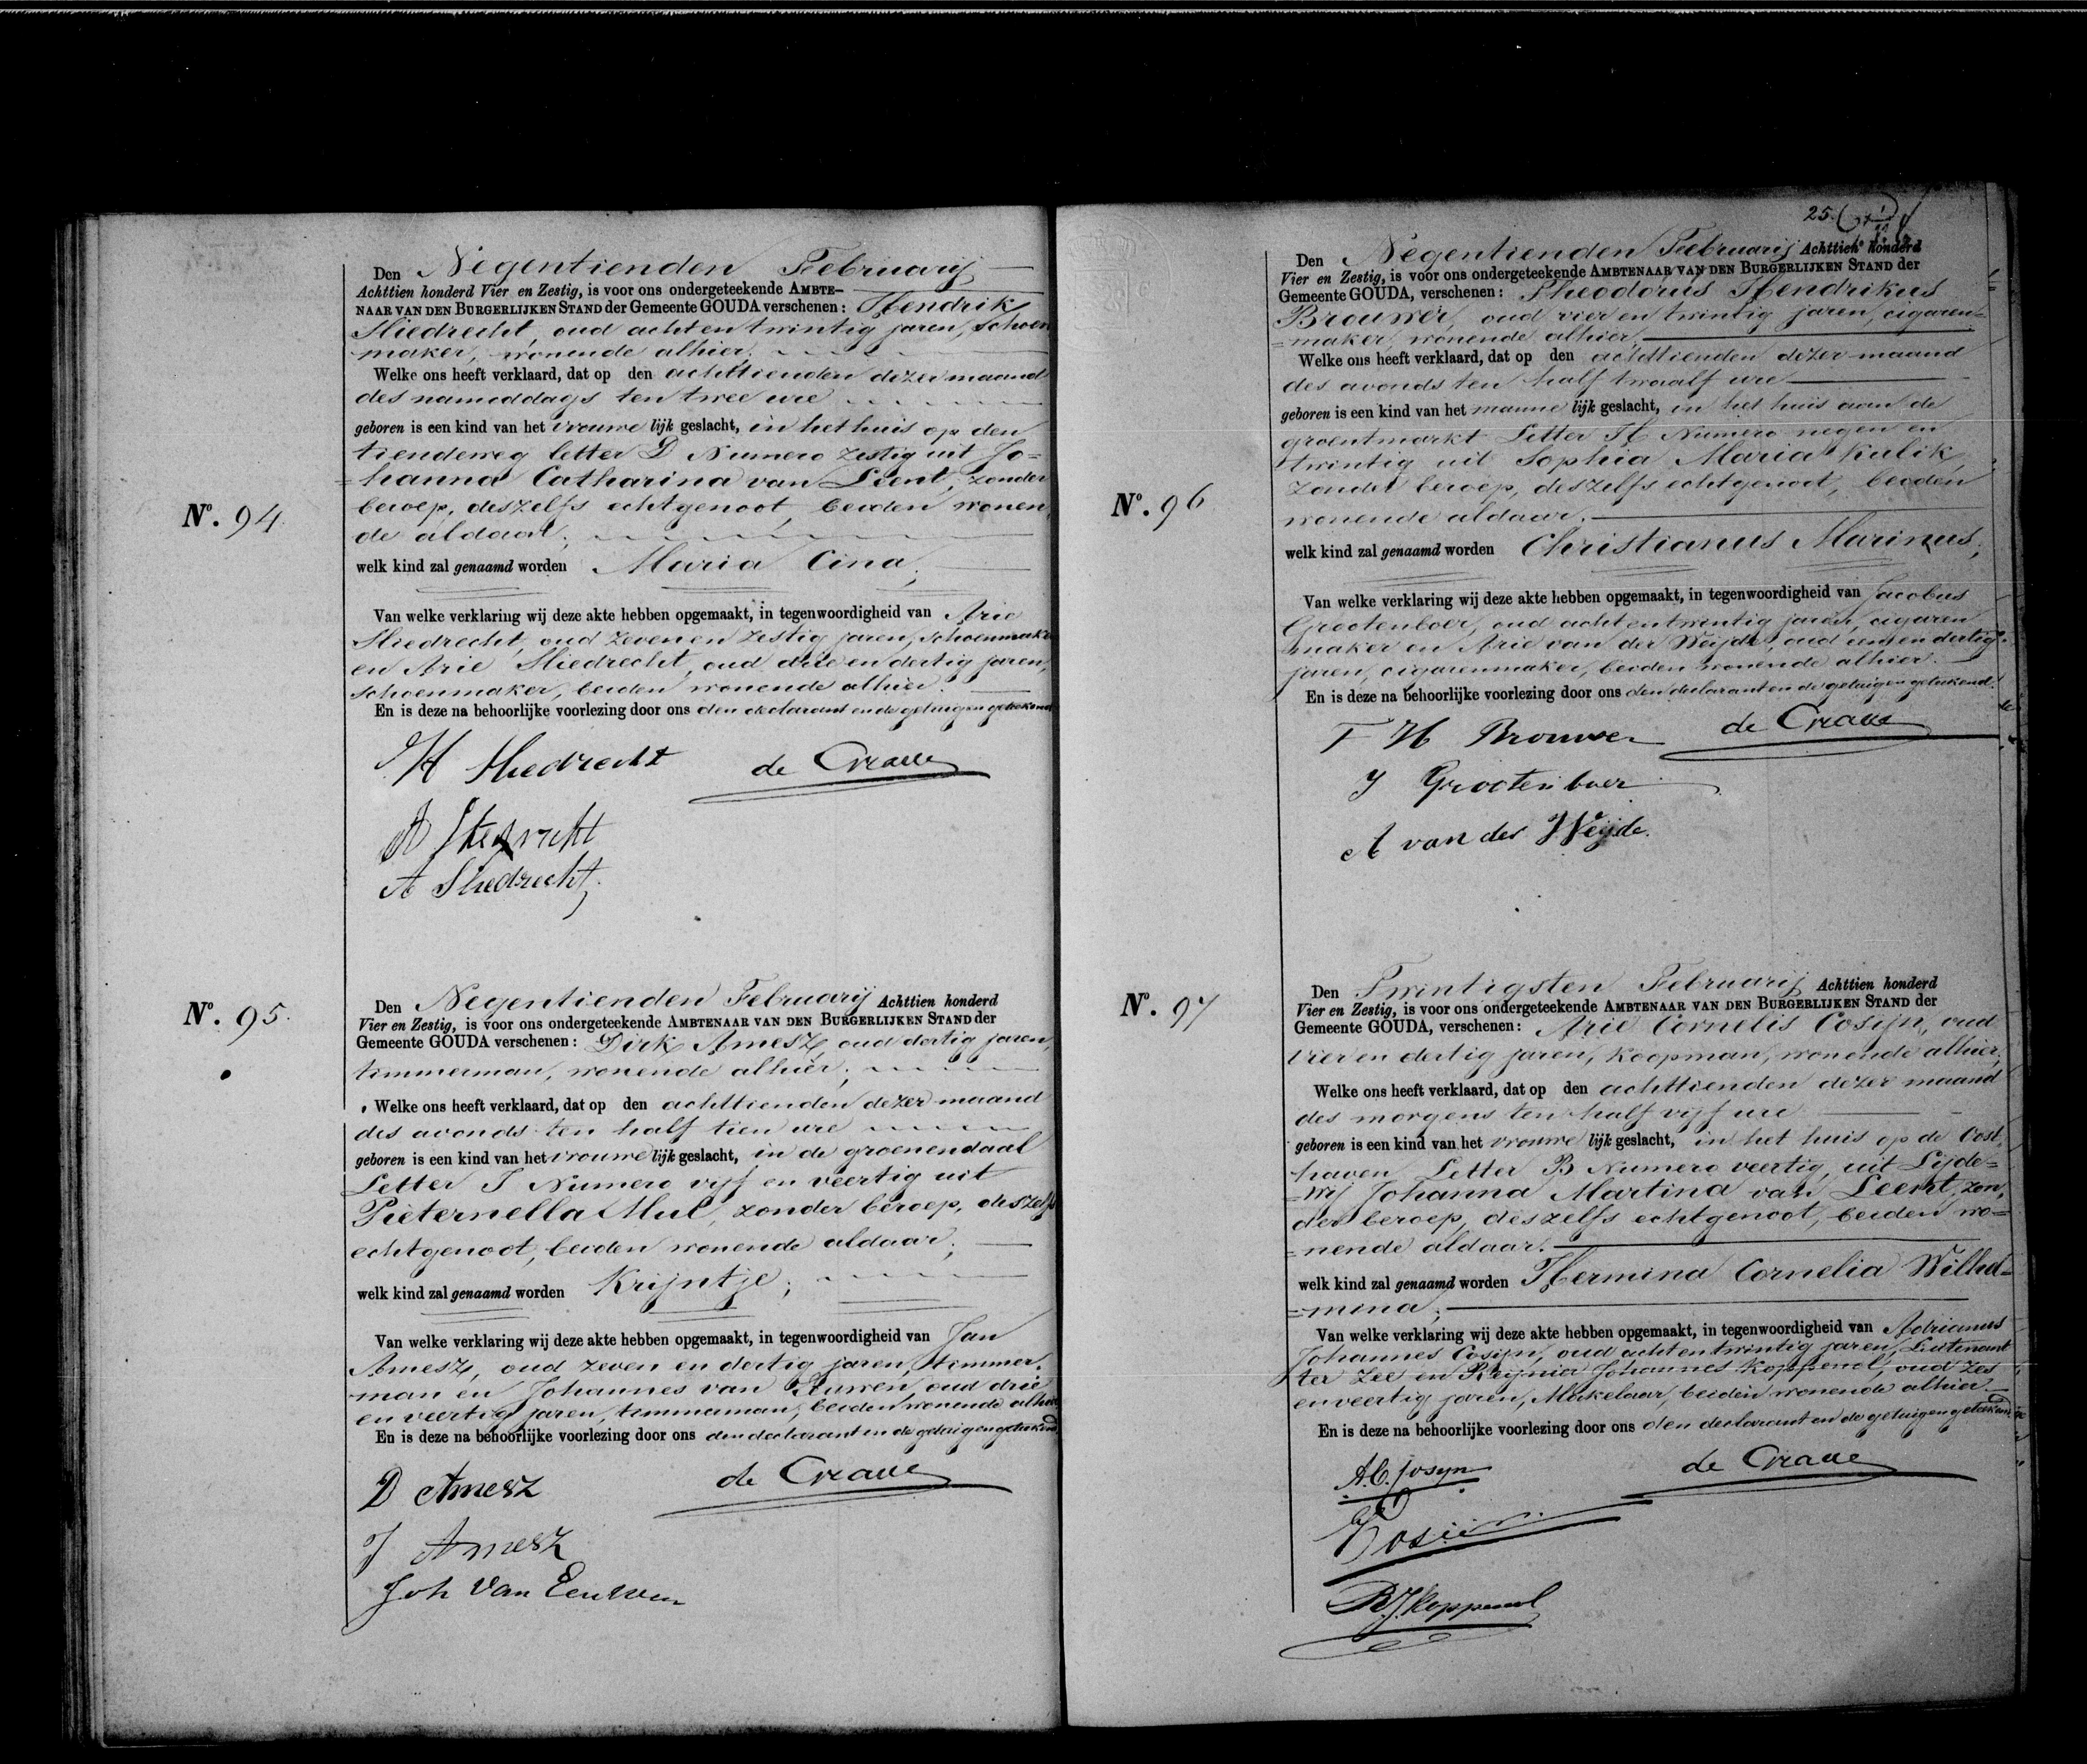 Nº. 94.
Den Negentienden Februarij
Achttien honderd Vier en Zestig, is voor ons ondergeteekende AMBTE-
NAAR VAN DEN BURGERLIJKEN STAND der Gemeente GOUDA verschenen: Hendrik
Sliedrecht, oud acht en twintig jaren, schoen
maker, wonende alhier,
Welke ons heeft verklaard, dat op den achttienden dezer maand
des namiddags ten twee ure
geboren is een kind van het vrouwe lijk geslacht, in het huis op den
tiendeweg letter D Numero zestig uit Jo=
=hanna Catharina van Leent, zonder
beroep, deszelfs echtgenoot, beiden wonen
de aldaar;
welk kind zal genaamd worden Maria Cina;
Van welke verklaring wij deze akte hebben opgemaakt, in tegenwoordigheid van Arie
Sliedrecht, oud zeven en zestig jaren, schoenmaker
en Arie Sliedrecht, oud drie en dertig jaren,
schoenmaker, beiden wonende alhier.
En is deze na behoorlijke voorlezing door ons den declarant en de getuigen geteekend
H Sliedrecht de Graue
A Sliedrecht
A Sliedrecht
Nº. 95.
Den Negentienden Februarij Achttien honderd
Vier en Zestig, is voor ons ondergeteekende AMBTENAAR VAN DEN BURGERLIJKEN STAND der
Gemeente GOUDA verschenen: Dirk Amesz, oud dertig jaren,
timmerman, wonende alhier;
Welke ons heeft verklaard, dat op den achttienden dezer maand
des avonds ten half tien ure
geboren is een kind van het vrouwe lijk geslacht, in de groenendaal
Letter I Numero vijf en veertig uit
Pieternella Mul, zonder beroep, deszelfs
echtgenoot, beiden wonende aldaar;
welk kind zal genaamd worden Krijntje;
Van welke verklaring wij deze akte hebben opgemaakt, in tegenwoordigheid van Jan
Amesz, oud zeven en dertig jaren, timmer-
man en Johannes van Eeuwen, oud drie
en veertig jaren, timmerman, beiden wonende alhier
En is deze na behoorlijke voorlezing door ons den declarant en de getuigen geteekend
D Amesz de Graue
J Amesz
Joh van Eeuwen
25.
Nº. 96
Den Negentienden Februarij Achttien honderd
Vier en Zestig, is voor ons ondergeteekende AMBTENAAR VAN DEN BURGERLIJKEN STAND der
Gemeente GOUDA, verschenen: Theodorus Hendrikus
Brouwer, oud vier en twintig jaren, cigaren=
=maker, wonende alhier,
Welke ons heeft verklaard, dat op den achttienden dezer maand
des avonds ten half twaalf ure
geboren is een kind van het manne lijk geslacht, in het huis aan de
groentmarkt Letter H Numero negen en
twintig uit Sophia Maria Kulik,
zonder beroep, deszelfs echtgenoot, beiden
wonende aldaar.
welk kind zal genaamd worden Christianus Marinus;
Van welke verklaring wij deze akte hebben opgemaakt, in tegenwoordigheid van Jacobus
Grootenboer, oud acht en twintig jaren, cigaren
maker en Arie van der Weijde, oud een en dertig
jaren, cigarenmaker, beiden wonende alhier.
En is deze na behoorlijke voorlezing door ons den declarant en de getuigen geteekend.
T H Brouwer de Graue
J Grootenboer
A van der Weijde.
Nº. 97
Den Twintigsten Februarij Achttien honderd
Vier en Zestig, is voor ons ondergeteekende AMBTENAAR VAN DEN BURGERLIJKEN STAND der
Gemeente GOUDA, verschenen: Arie Cornelis Cosijn, oud
vier en dertig jaren, koopman, wonende alhier;
Welke ons heeft verklaard, dat op den achttienden dezer maand
des morgens ten half vijf ure
geboren is een kind van het vrouwe lijk geslacht, in het huis op de Oost
haven Letter B Numero veertig, uit Lijde=
=wij Johanna Martina van Leent, zon,
der beroep, deszelfs echtgenoot, beiden wo=
=nende aldaar.
welk kind zal genaamd worden Hermina Cornelia Wilhel=
=mina;
Van welke verklaring wij deze akte hebben opgemaakt, in tegenwoordigheid van Adrianus
Johannes Cosijn, oud acht en twintig jaren, Luitenant
ter zee en Reijnier Johannes Koppenol, oud zes
en veertig jaren, Makelaar, beiden wonende alhier.
En is deze na behoorlijke voorlezing door ons den declarant en de getuigen geteekend
A.C. Cosijn de Graue
Cosijn
R.J. Koppenol